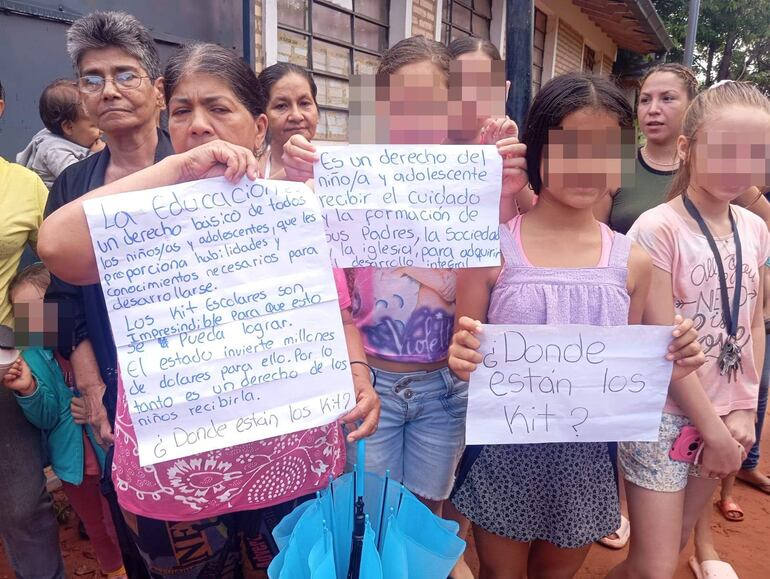 La Educación
un derecho básico de todos
los niños/as y adolescentes, que les
proporciona habilidades y
conocimientos necesarios para
desarrollarse.
Los Kit Escolares son
Impresindible para que esto
se Pueda lograr.
El estado invierte millones
de dólares para ello. Por lo
tanto es un derecho de los
niños recibirla.
¿Donde están los Kit?
Es un derecho del
niño/a y adolescente
recibir el cuidado
y la formación de
sus Padres, la Sociedad
la iglesia, para adquirir
desarrollo integral
¿Donde
están los
Kit?
Violet